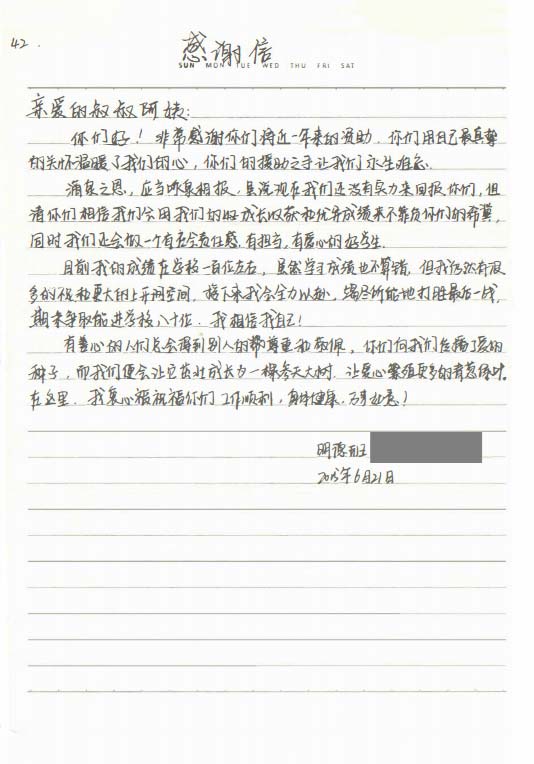 42.
感谢信
SUN MON TUE WED THU FRI SAT
亲爱的叔叔阿姨:
你们好！非常感谢你们将近一年来的资助，你们用自己最真挚
的关怀温暖了我们的心，你们的援助之手让我们永生难忘.
滴泉之恩，应当涌泉相报，虽说现在我们还没有actual力来回报你们，但
请你们相信我们会用我们的成长收获和优异成绩来不辜负你们的希冀，
同时我们还会做一个有社会责任感，有担当，有爱心的好学生.
目前我的成绩在学校一百位左右，虽然学习成绩也不算错，但我仍然有很
多的不足和更大的上升空间，接下来我会全力以赴，竭尽所能地打胜最后一战，
期末争取能进学校八十位，我相信我自己！
有善心的人们总会得到别人的尊重和敬佩，你们向我们传播了爱的
种子，而我们便会让它茁壮成长为一棵参天大树，让爱心
在这里，我衷心祝福你们工作顺利，身体健康，万事如意！
明德班
2015年6月21日